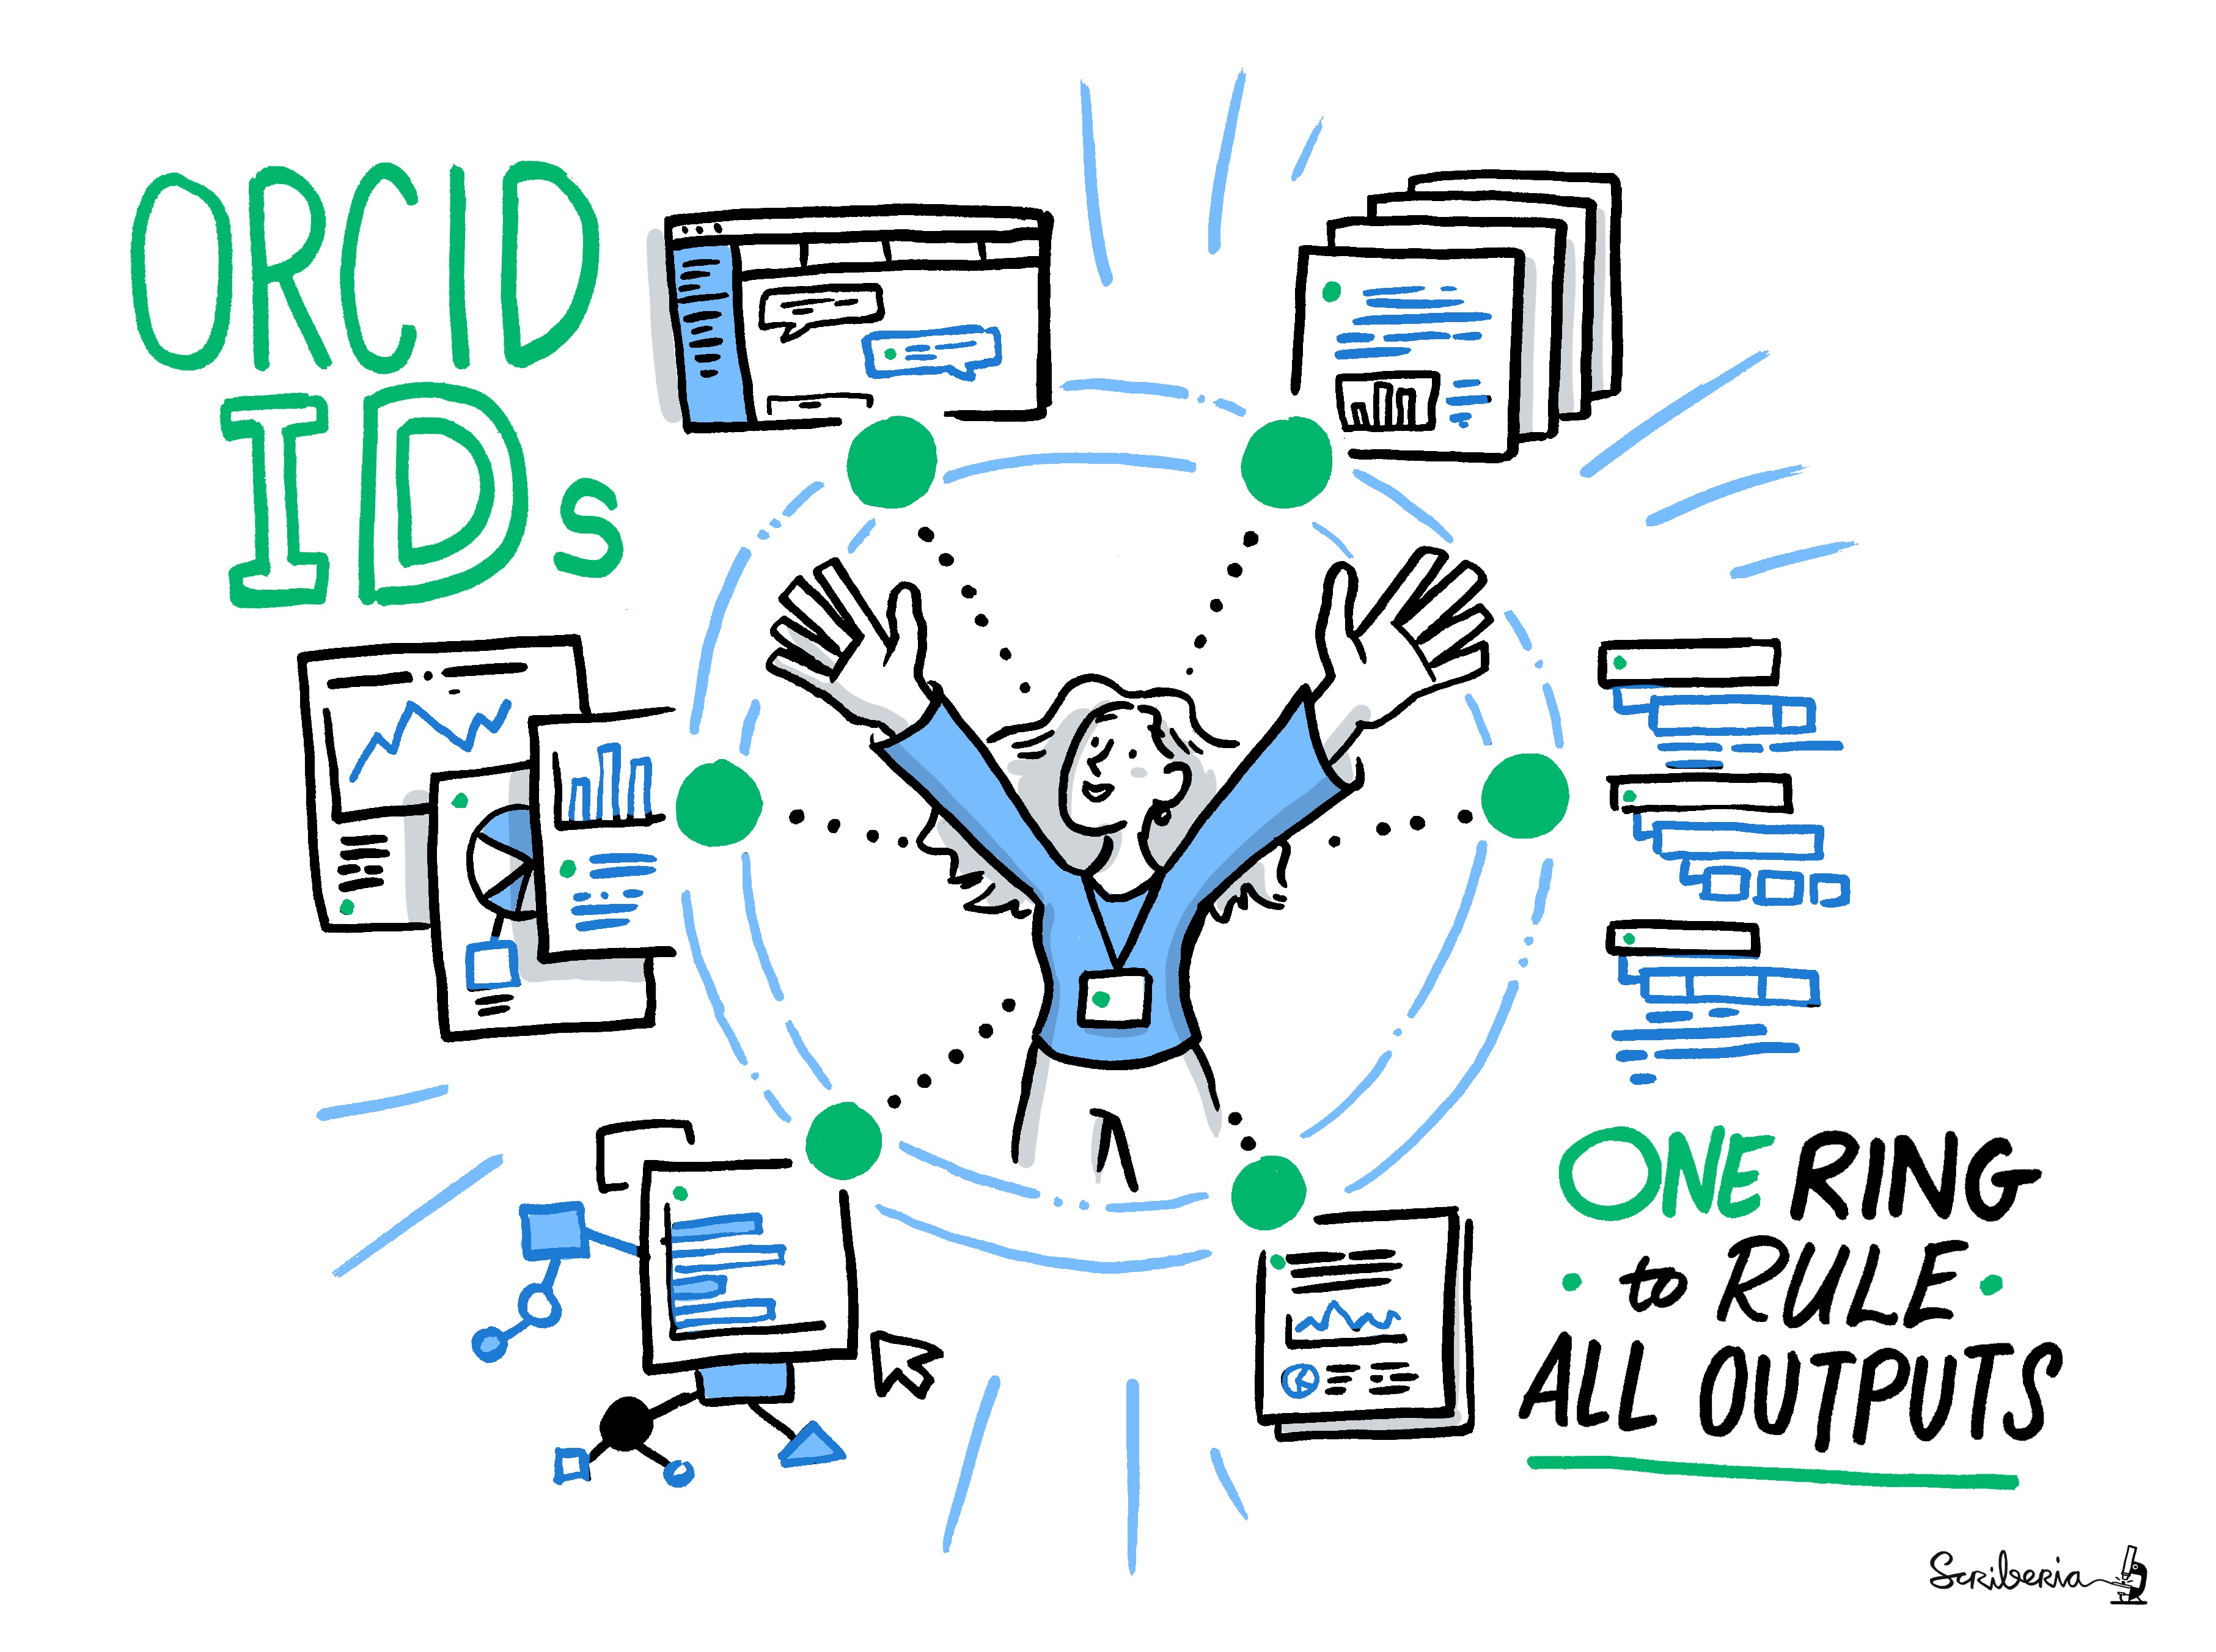 ORCID
IDs
ONE RING
to RULE
ALL OUTPUTS
Scriberia